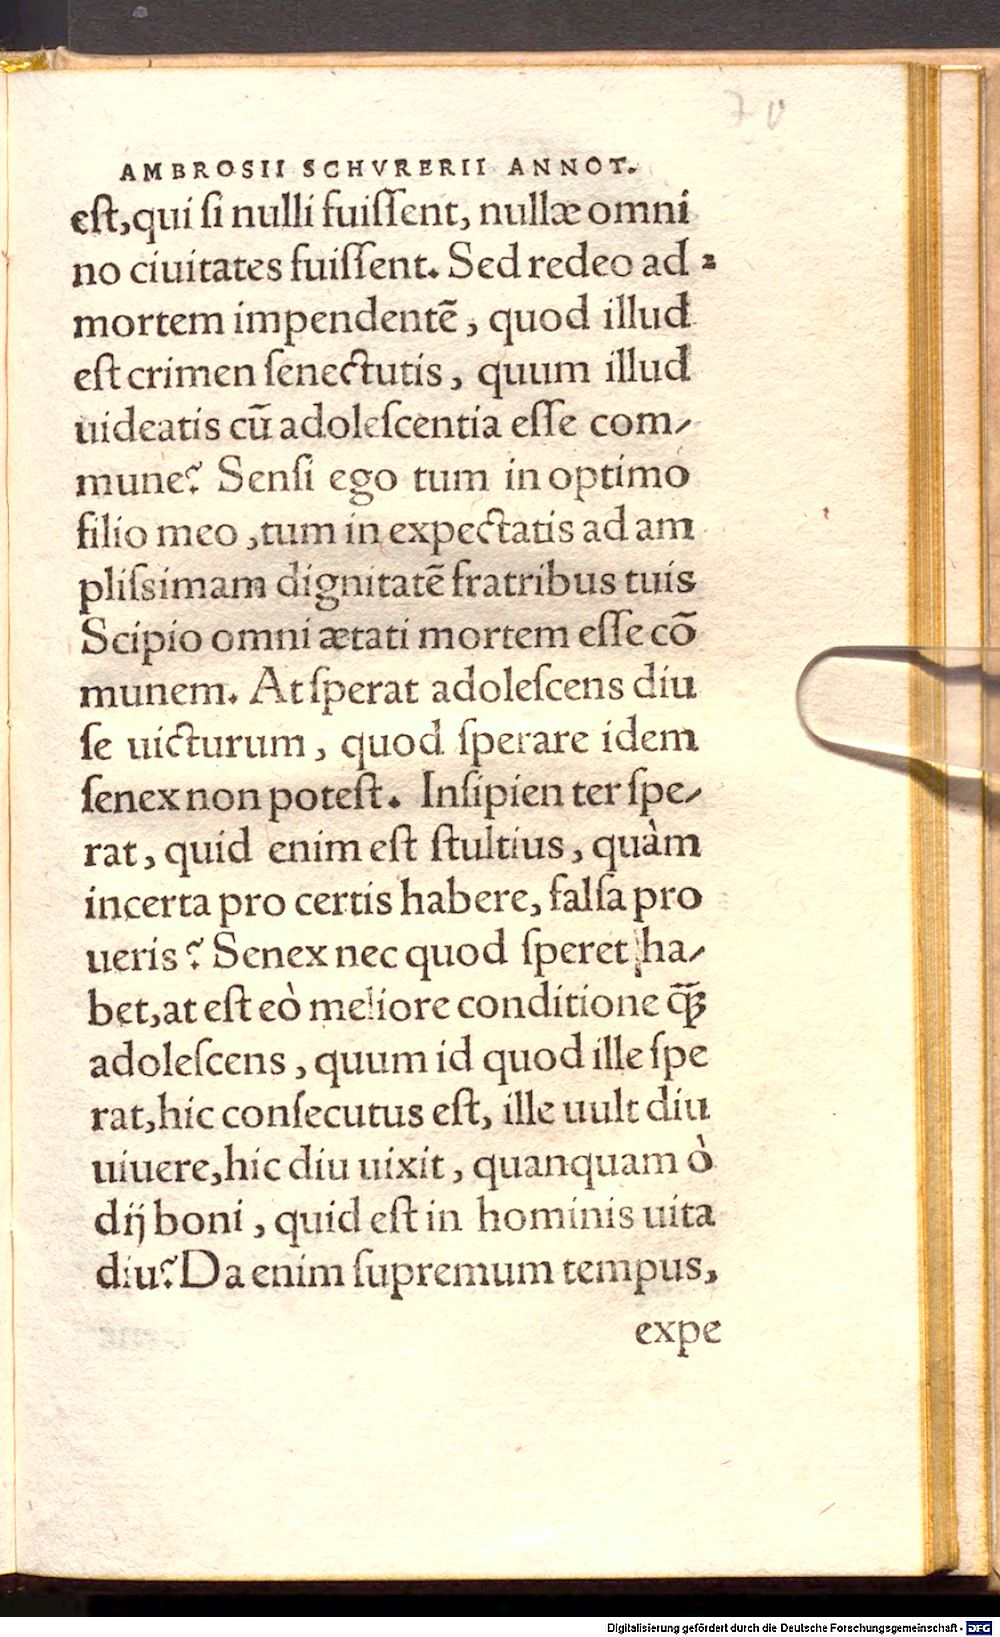 70
AMBROSII SCHVRERII ANNOT.
eſt, qui ſi nulli fuiſſent, nullæ omni
no ciuitates fuiſſent. Sed redeo ad 2
mortem impendentē, quod illud
eſt crimen ſenectutis, quum illud
uideatis cū adoleſcentia eſſe com-
mune? Senſi ego tum in optimo
filio meo, tum in expectatis ad am
pliſsimam dignitatē fratribus tuis
Scipio omni ætati mortem eſſe cō
munem. At ſperat adoleſcens diu
ſe uicturum, quod ſperare idem
ſenex non poteſt. Inſipienter ſpe-
rat, quid enim eſt ſtultius, quàm
incerta pro certis habere, falſa pro
ueris? Senex nec quod ſperet ha-
bet, at eſt eò meliore conditione q̄ꝫ
adoleſcens, quum id quod ille ſpe
rat, hic conſecutus eſt, ille uult diu
uiuere, hic diu uixit, quanquam ò
dij boni, quid eſt in hominis uita
diu? Da enim ſupremum tempus,
expe
Digitalisierung gefördert durch die Deutsche Forschungsgemeinschaft - DFG